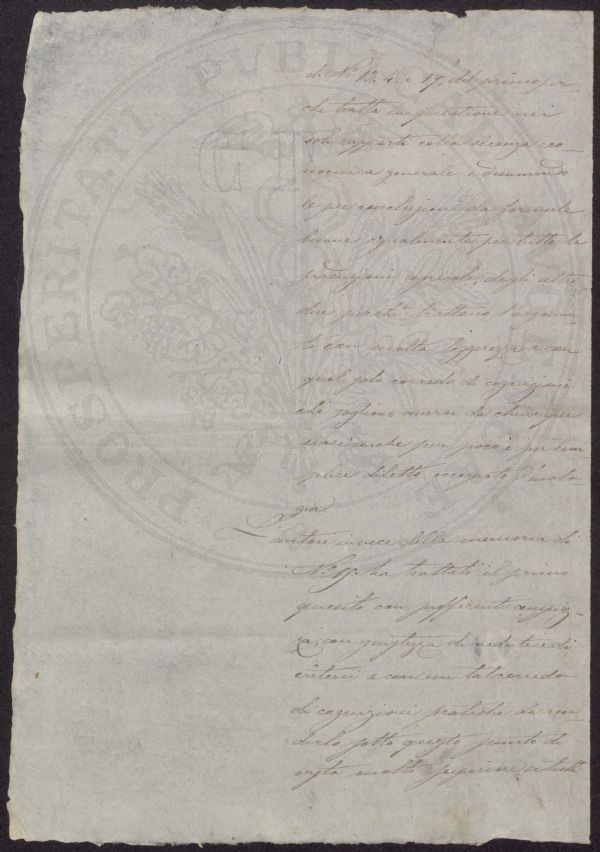 di N.º 13. 4. e 19. del primo per-
che tratta la questione nei
soli rapporti colla scienza eco-
nomica generale e desumendo
le sue conclusioni da formule
buone egualmente per tutte le
produzioni agricole, degli altri
due perchè trattano l'argomen-
to con molta leggerezza e con
quel solo corredo di cognizioni
che sogliono aversi da chiunque
siasi anche per poco e per sem
plice diletto occupato d'enolo-
gia.
L'autore invece della memoria di
N.º 17. ha trattato il primo
quesito con sufficiente ampiez-
za, con giustezza di vedute e di
criteri e con un tal corredo
di cognizioni pratiche da ren-
derlo sotto questo punto di
vista molto superiore a tutti
PROSPERITATI PVBLI